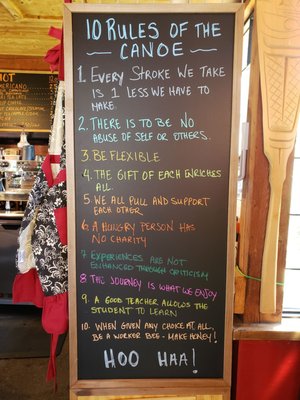 10 RULES OF THE
CANOE
1. EVERY STROKE WE TAKE
IS 1 LESS WE HAVE TO
MAKE.
2. THERE IS TO BE NO
ABUSE OF SELF OR OTHERS.
3. BE FLEXIBLE
4. THE GIFT OF EACH ENRICHES
ALL.
5 WE ALL PULL AND SUPPORT
EACH OTHER
6 A HUNGRY PERSON HAS
NO CHARITY
7 EXPERIENCES ARE NOT
ENHANCED THROUGH CRITICISM
8 THE JOURNEY IS WHAT WE ENJOY
9. A GOOD TEACHER ALLOWS THE
STUDENT TO LEARN
10. WHEN GIVEN ANY CHOICE AT ALL,
BE A WORKER BEE - MAKE HONEY!
HOO HAA!
HOT